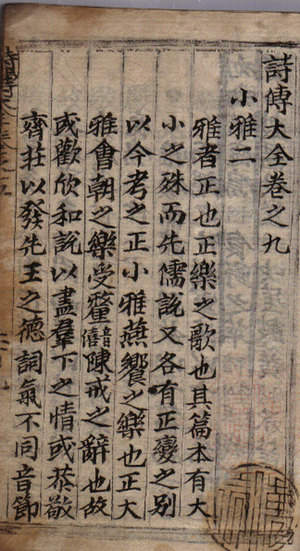 詩傳大全卷之九
小雅二
雅者正也正樂之歌也其篇本有大
小之殊而先儒說又各有正變之別
以今考之正小雅燕饗之樂也正大
雅會朝之樂受釐僖音陳戒之辭也故
或歡欣和說以盡羣下之情或恭敬
齊莊以發先王之德詞氣不同音節